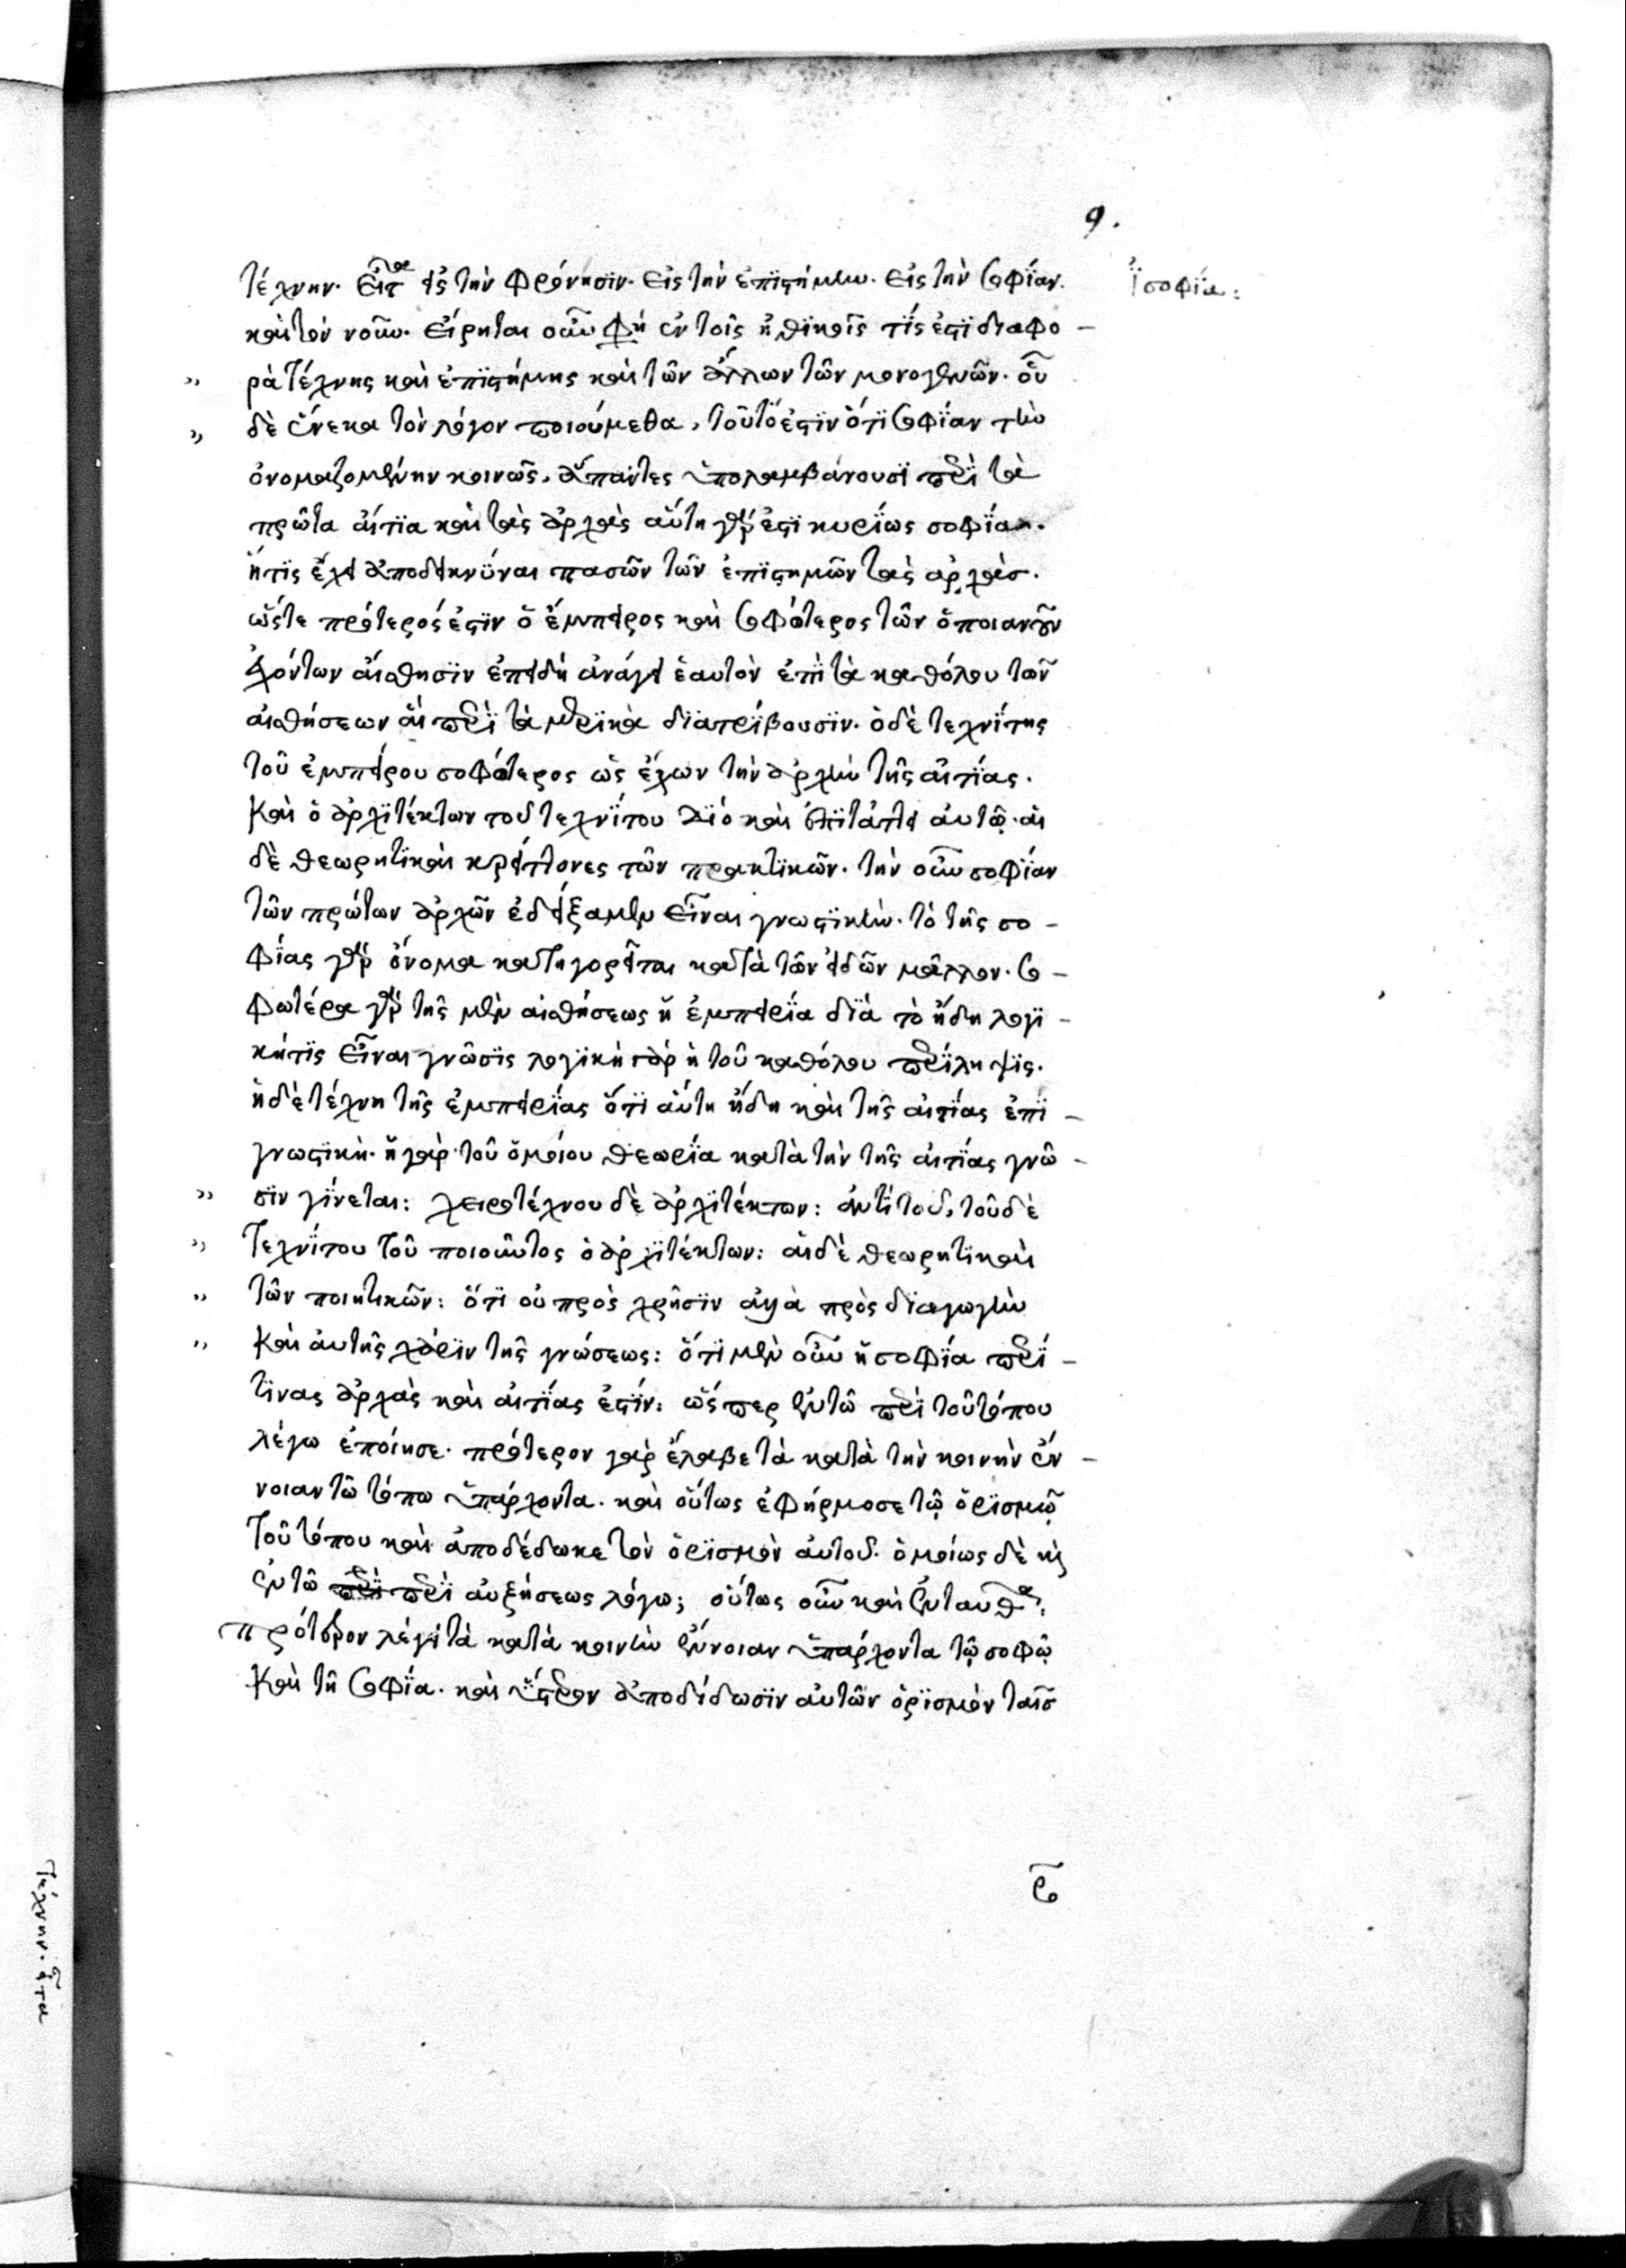 9.
τέχνην. εἶτα εἰς τὴν φρόνησϊν. εἰς τὴν ἐπϊστήμην. εἰς τὴν σοφΐαν.
ἡ σοφΐα:
καὶ τὸν νοῦν. εἴρηται οὖν φη ἐν τοῖς ἠθϊκοῖς τΐς ἐστϊ διαφο -
ρὰ τέχνης καὶ ἐπϊστήμης καὶ τῶν ἄλλων τῶν μονογενῶν. οὗ
δὲ ἕνεκα τὸν λόγον ποιούμεθα, τοῦτό ἐστϊν ὅτϊ σοφΐαν τὴν
ὀνομαζομένην κοινῶς, ἅπαντες ὑπολαμβάνουσϊ περὶ τὰ
πρῶτα αἴτϊα καὶ τὰς ἀρχὰς αὕτη γάρ ἐστϊ κυρΐως σοφΐα.
ἥτϊς ἔχει ἀποδεικνύναι πασῶν τῶν ἐπϊστημῶν τὰς ἀρχάσ.
ὥστε πρότερός ἐστϊν ὁ ἔμπειρος καὶ σοφώτερος τῶν ὁποιανοῦν
ἐχόντων αἴσθησϊν ἐπειδὴ ἀνάγει ἑαυτὸν ἐπὶ τὰ καθόλου τῶν
αἰσθήσεων αἳ περὶ τὰ μερϊκὰ δϊατρΐβουσϊν. ὁ δὲ τεχνΐτης
τοῦ ἐμπείρου σοφώτερος ὡς ἔχων τὴν ἀρχὴν τῆς αἰτΐας.
καὶ ὁ ἀρχϊτέκτων τοῦ τεχνΐτου δϊὸ καὶ ἐπϊτάττει αὐτῷ. αἱ
δὲ θεωρητϊκαὶ κρείττονες τῶν πρακτϊκῶν. τὴν οὖν σοφΐαν
τῶν πρώτων ἀρχῶν ἐδείξαμεν εἶναι γνωστϊκὴν. τὸ τῆς σο -
φΐας γὰρ ὄνομα κατηγορεῖται κατὰ τῶν εἰδῶν μᾶλλον. σο -
φωτέρα γὰρ τῆς μὲν αἰσθήσεως ἡ ἐμπειρΐα δϊὰ τὸ ἤδη λογϊ -
κή τϊς εἶναι γνῶσϊς λογϊκὴ γὰρ ἡ τοῦ καθόλου περΐληψϊς.
ἡ δὲ τέχνη τῆς ἐμπειρΐας ὅτϊ αὕτη ἤδη καὶ τῆς αἰτΐας ἐπϊ -
γνωστϊκή. ἡ γὰρ τοῦ ὁμοίου θεωρΐα κατὰ τὴν τῆς αἰτΐας γνῶ -
σϊν γΐνεται: χειροτέχνου δὲ ἀρχϊτέκτων: ἀντὶ τοῦ, τοῦ δὲ
τεχνΐτου τοῦ ποιοῦντος ὁ ἀρχϊτέκτων: αἱ δὲ θεωρητϊκαὶ
τῶν ποιητικῶν: ὅτϊ οὐ πρὸς χρῆσϊν ἀλλὰ πρὸς δϊαγωγὴν
καὶ αὐτῆς χάρϊν τῆς γνώσεως: ὅτϊ μὲν οὖν ἡ σοφΐα περΐ -
τϊνας ἀρχὰς καὶ αἰτΐας ἐστΐν: ὥσπερ ἐν τῶ περὶ τοῦ τόπου
λόγω ἐποίησε. πρότερον γὰρ ἔλαβε τὰ κατὰ τὴν κοινὴν ἔν -
νοιαν τῶ τόπω ὑπάρχοντα. καὶ οὕτως ἐφήρμοσε τῷ ὁρϊσμῷ
τοῦ τόπου καὶ ἀποδέδωκε τὸν ὁρϊσμὸν αὐτοῦ. ὁμοίως δὲ κὶ
ἐν τῶ περὶ περὶ αὐξήσεως λόγω; οὕτως οὖν καὶ ἐνταῦθα,
πρότερον λέγει τὰ κατὰ κοινὴν ἔννοιαν ὑπάρχοντα τῷ σοφῷ
καὶ τῆ σοφΐα. καὶ ὕστερον ἀποδίδωσϊν αὐτῶν ὁρϊσμὸν ταῖσ
τέχνην. εἶτα